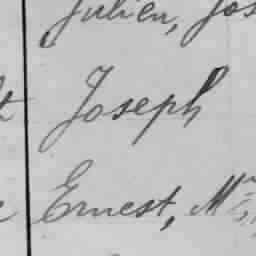 Julien, Jos
Joseph
Ernest, M